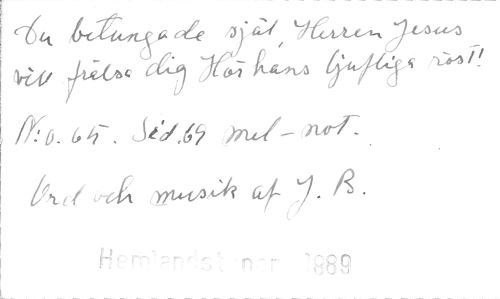 Du betungade själ, Herren Jesus
vill frälsa dig Hör hans ljufliga röst!
N:o. 65. Sid. 69 mel-not.
Ord och musik af J. B.
Hemlandst ner 1889